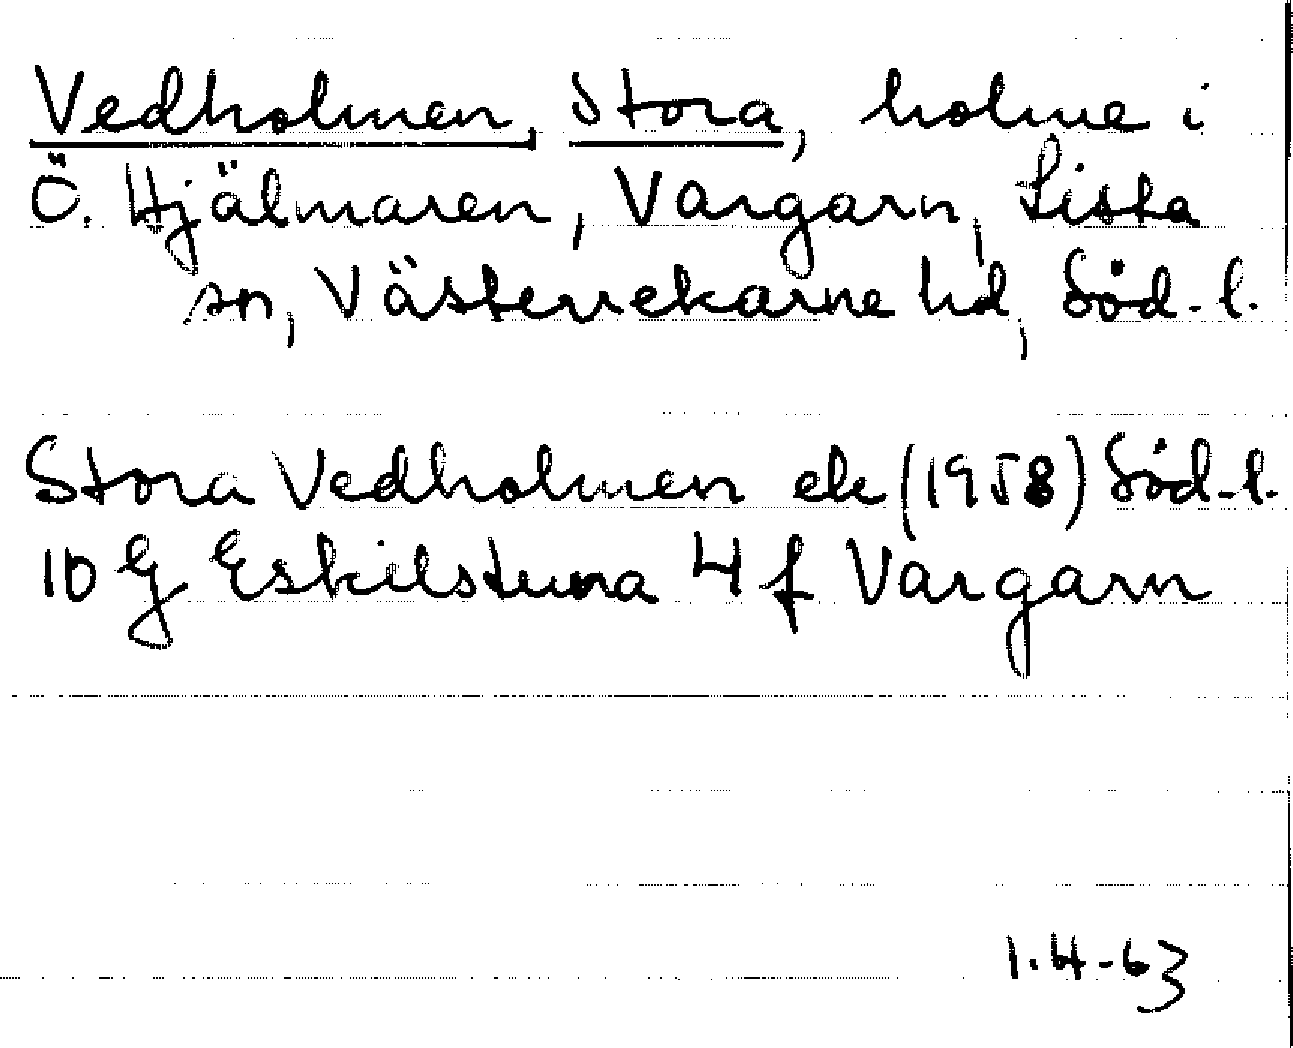 Vedholmen, Stora, holme i
Ö. Hjälmaren, Vargarn, Lista
sn, Västerrekarne hd, Söd-l.
Stora Vedholmen ek (1958) Söd-l.
10 G Eskilstuna 4 f Vargarn
1.4-63